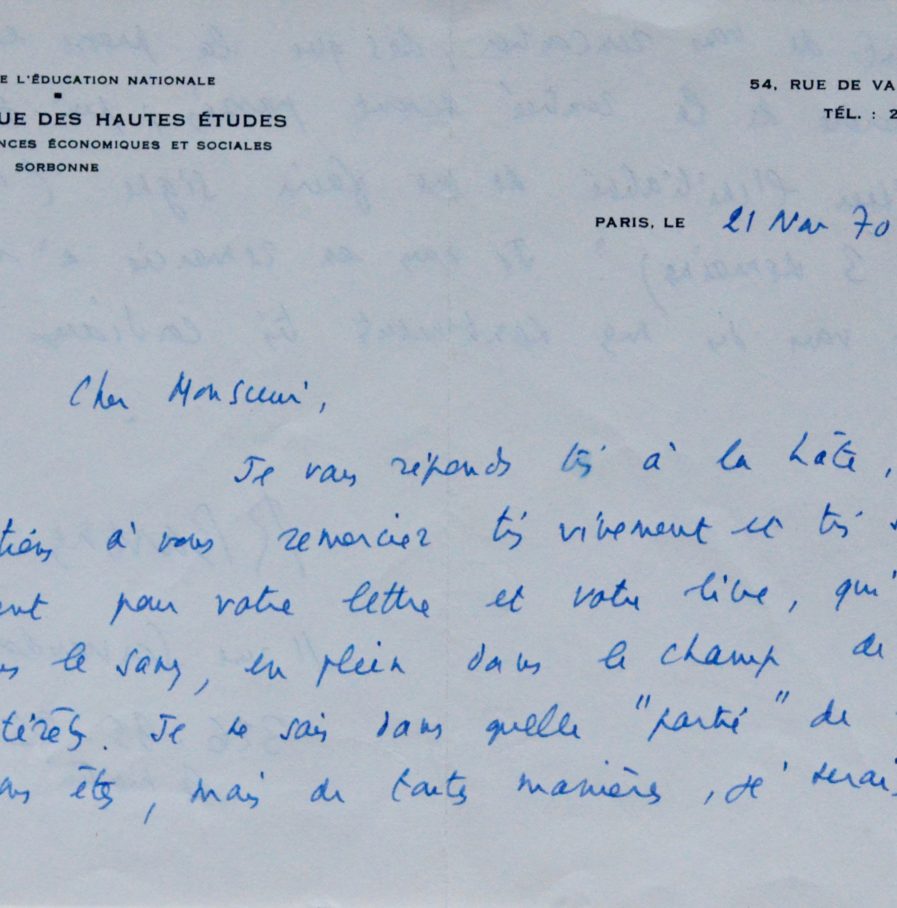 E L'ÉDUCATION NATIONALE
54, RUE DE VA
UE DES HAUTES ÉTUDES
TÉL. : 2
NCES ÉCONOMIQUES ET SOCIALES
SORBONNE
PARIS, LE 21 Nov 70
Cher Monsieur,
Je vous réponds très à la hâte,
tiens à vous remercier très vivement et très
ent pour votre lettre et votre livre, qui
le sang, en plein dans le champ de
térêts. Je ne sais dans quelle "partie" de
ous êtes, mais de toutes manières, je serais